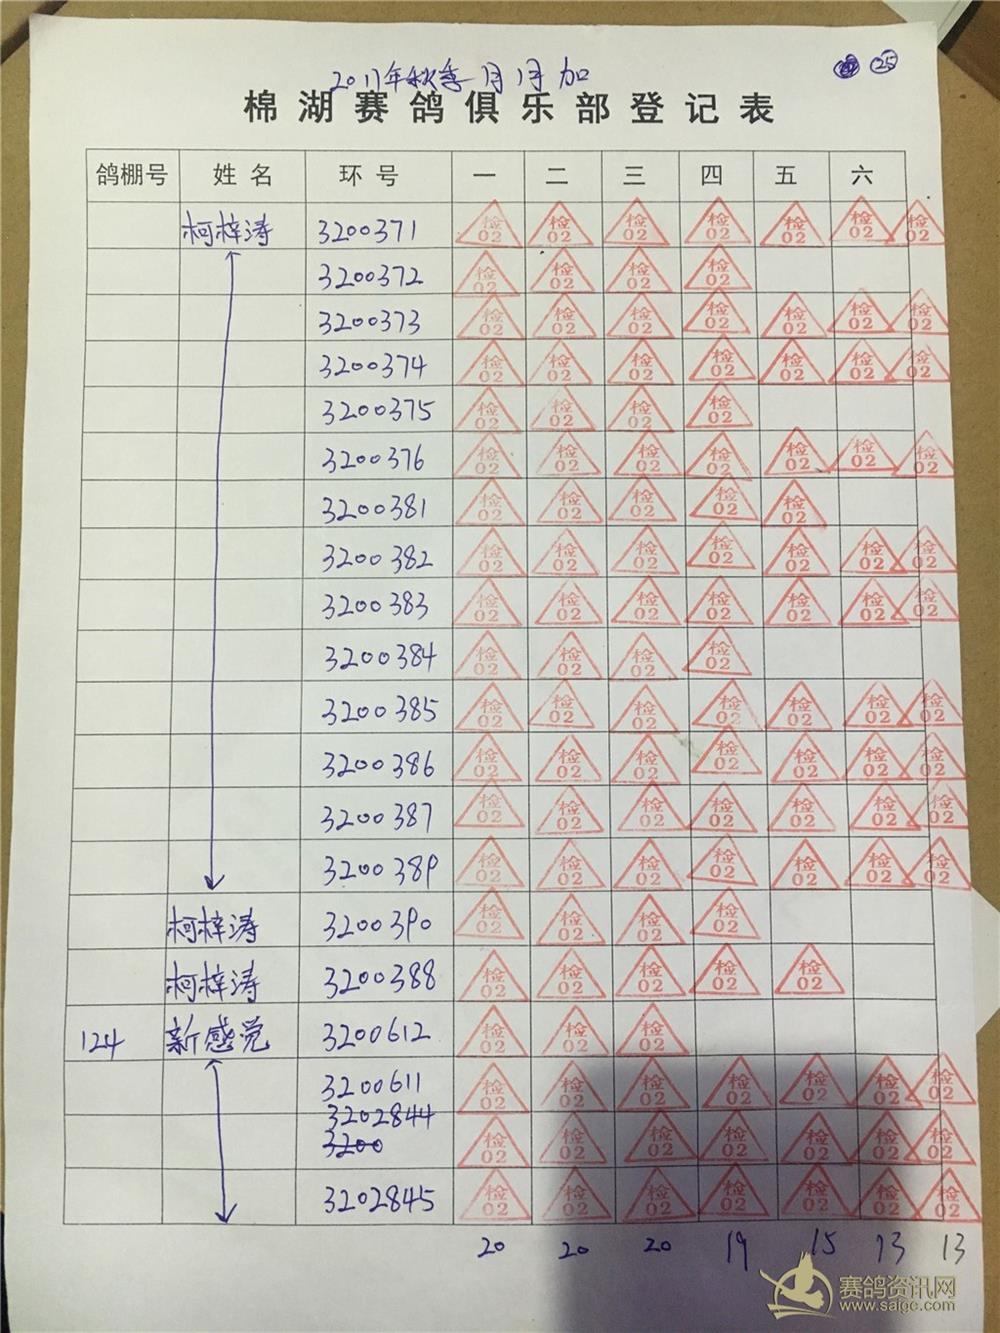 2017年秋季 月 1月 加
25
棉湖赛鸽俱乐部登记表
鸽棚号 姓名 环号 一 二 三 四 五 六
柯梓涛 3200371 检02 检02 检02 检02 检02 检02 检02
3200372 检02 检02 检02 检02
3200373 检02 检02 检02 检02 检02 检02 检02
3200374 检02 检02 检02 检02 检02 检02 检02
3200375 检02 检02 检02 检02
3200376 检02 检02 检02 检02 检02 检02 检02
3200381 检02 检02 检02 检02 检02
3200382 检02 检02 检02 检02 检02 检02 检02
3200383 检02 检02 检02 检02 检02 检02 检02
3200384 检02 检02 检02 检02
3200385 检02 检02 检02 检02 检02 检02 检02
3200386 检02 检02 检02 检02 检02 检02 检02
3200387 检02 检02 检02 检02 检02 检02 检02
3200389 检02 检02 检02 检02 检02 检02 检02
柯梓涛 3200390 检02 检02 检02 检02
柯梓涛 3200388 检02 检02 检02 检02 检02
124 新感觉 3200612 检02 检02 检02
3200611 检02 检02 检02 检02 检02 检02 检02
3202844
3200 检02 检02 检02 检02 检02 检02 检02
3202845 检02 检02 检02 检02 检02 检02 检02
20 20 20 19 15 13 13
赛鸽资讯网
www.saigc.com